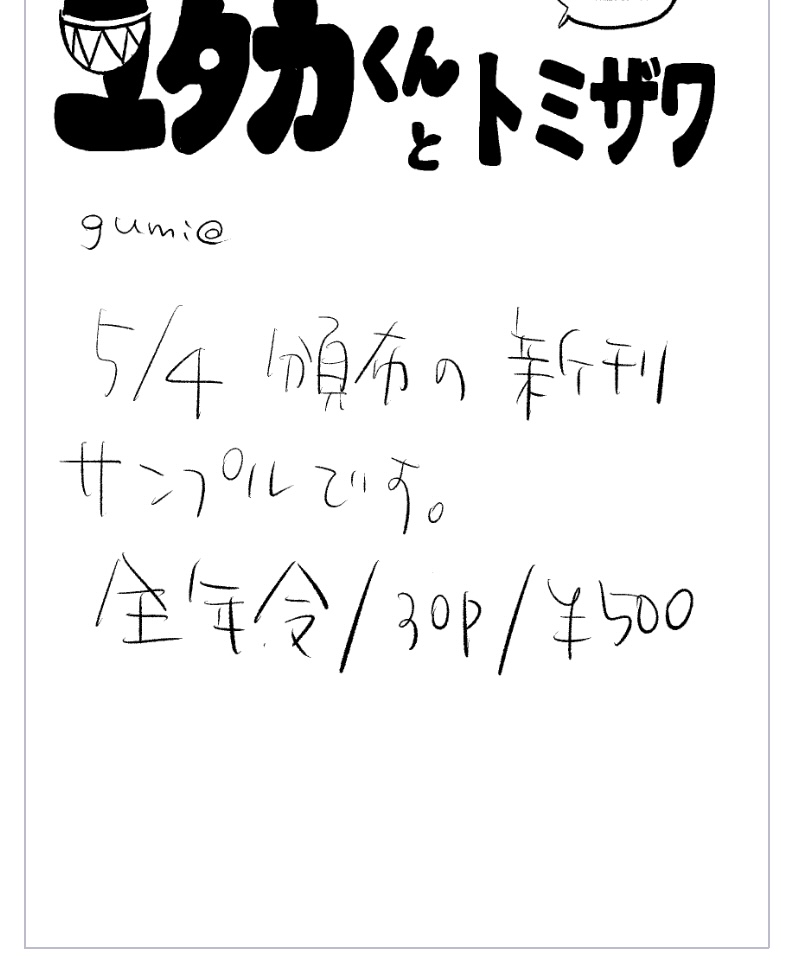 ユタカくんとトミザワ
gumi@
5/4 頒布の新刊
サンプルです。
全年令/30p/¥500